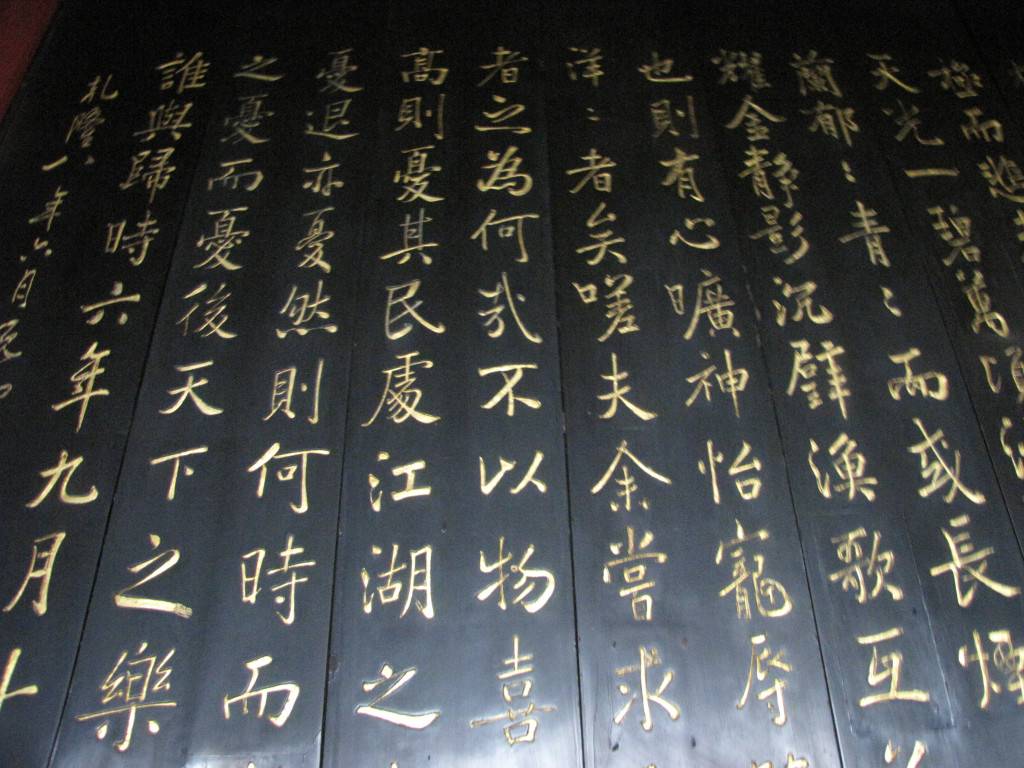 極而悲
天光一碧萬頃
蘭郁〻青〻而或長煙
耀金靜影沉璧漁歌互
也則有心曠神怡寵辱
洋〻者矣嗟夫余嘗求
者之為何哉不以物喜
高則憂其民處江湖之
憂退亦憂然則何時而
之憂而憂後天下之樂
誰與歸時六年九月十
乾隆八年六月